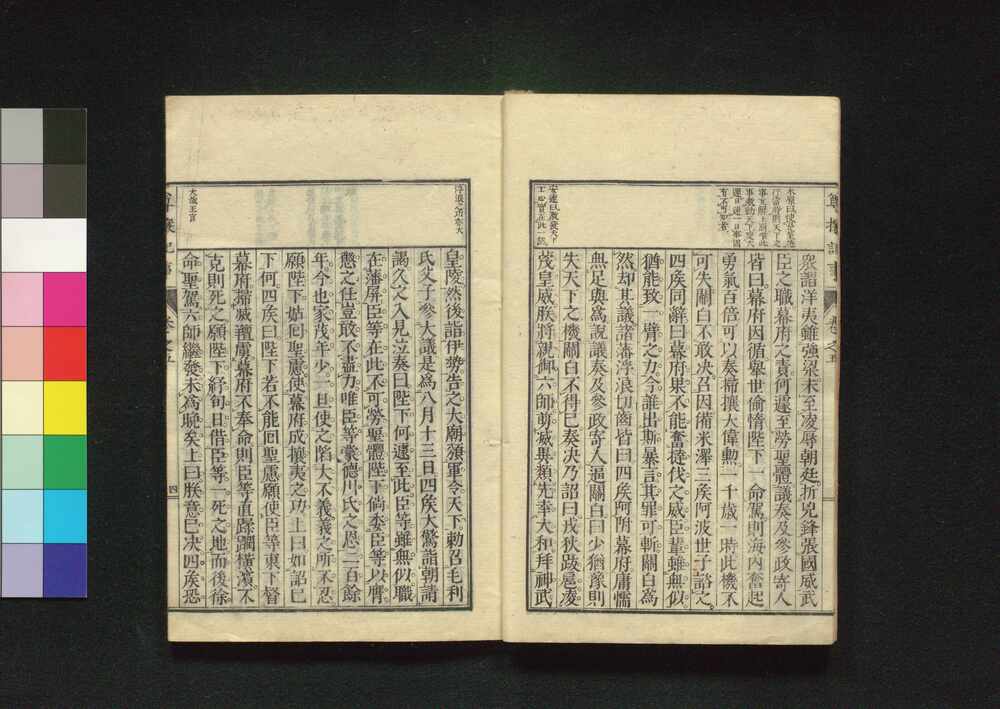 衆謂洋夷雖強梁未至凌辱朝廷折兇鋒張國威武
臣之職幕府之責何遽至勞聖體議奏及參政寄人
皆曰幕府因循擧世偷惰陛下一命駕則海內奮起
勇氣百倍可以奏掃攘大偉勳一千歲一時此機不
可失關白不敢決召因備米澤三矦阿波世子諮之
四矦同辭曰幕府果不能奮撻伐之威臣輩雖無似
猶能致一臂之力今誰出斯暴言其罪可斬關白爲
然却其議諸藩浮浪切齒皆曰四矦阿附幕府庸懦
無足與爲說議奏及參政寄人逼關白曰少猶豫則
失天下之機關白不得已奏決乃詔曰戎狄跋扈凌
蔑皇威朕將親帥六師剪滅異類先幸大和拜神武
皇陵然後詣伊勢告之大廟頒軍令天下勅召毛利
氏父子參大議是爲八月十三日四矦大驚詣朝請
謁久之入見泣奏曰陛下何遽至此臣等雖無似職
在藩屏臣等在此不可勞聖體陛下倘委臣等以膺
懲之任豈敢不盡力唯臣等蒙德川氏之恩二百餘
年今也家茂年少一旦使之陷大不義義之所不忍
願陛下姑回聖慮使幕府成攘夷之功上曰如詔已
下何四矦曰陛下若不能回聖慮願使臣等東下督
幕府掃滅羶虜幕府不奉命則臣等直蹂躪橫濱不
克則死之願陛下紓旬日借臣等一死之地而後徐
命聖駕六師繼發未爲晩矣上曰朕意已決四矦恐
大哉王言
卷之五
四